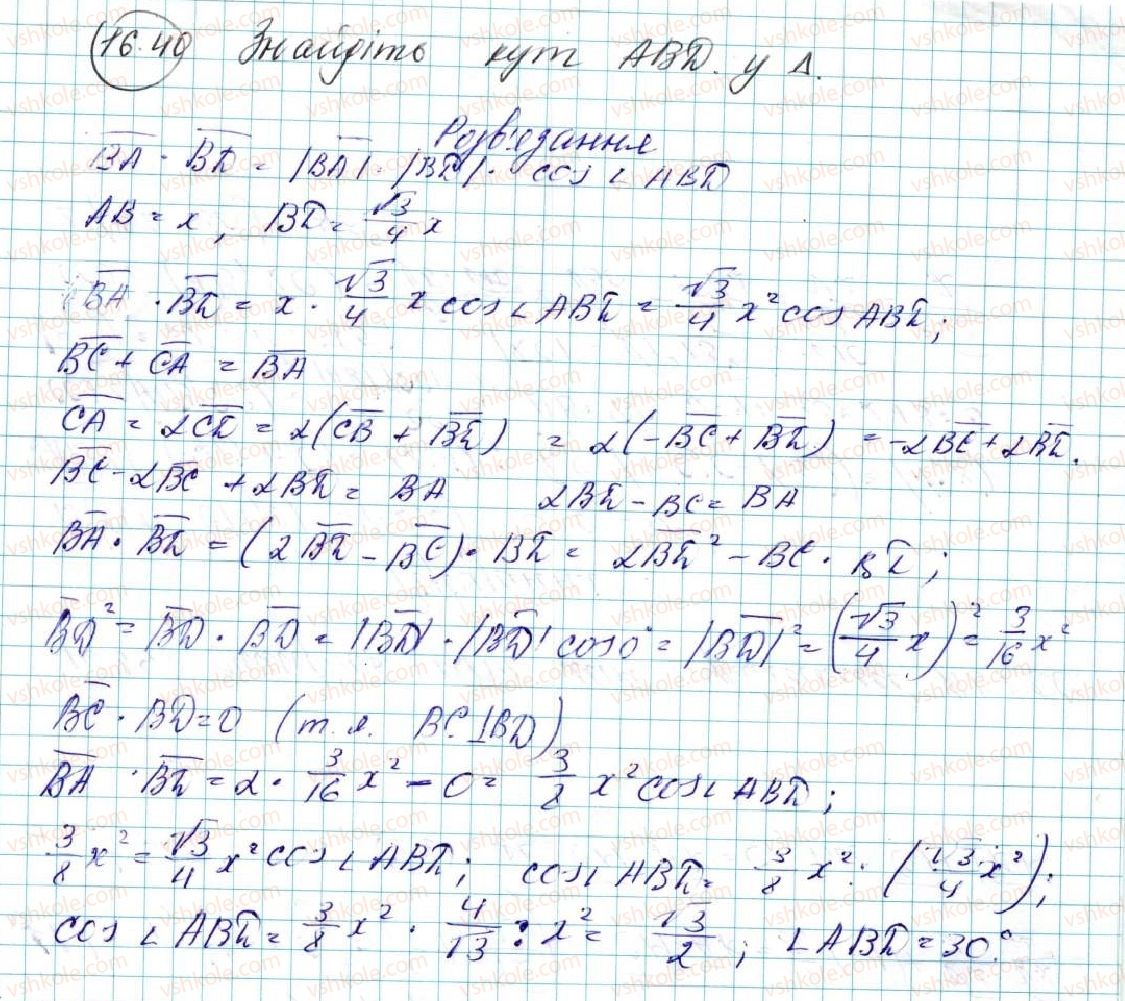 16.40 Знайдіть кут ABD. у Δ.
Розв'язання
BA · BD = |BA| · |BD| · cos ∠ ABD
AB = x, BD = √3/4 x
BA · BD = x · √3/4 x cos ∠ ABD = √3/4 x² cos ABD;
BC + CA = BA
CA = 2CD = 2(CB + BD) = 2(-BC + BD) = -2BC + 2BD.
BC - 2BC + 2BD = BA 2BD - BC = BA
BA · BD = (2BD - BC) · BD = 2BD² - BC · BD;
BD² = BD · BD = |BD| · |BD| cos 0° = |BD|² = (√3/4 x)² = 3/16 x²
BC · BD = 0 (т.я. BC ⊥ BD)
BA · BD = 2 · 3/16 x² - 0 = 3/8 x² cos ∠ ABD;
3/8 x² = √3/4 x² cos ∠ ABD; cos ∠ ABD = 3/8 x² : (√3/4 x²);
cos ∠ ABD = 3/8 x² · 4/√3 : x² = √3/2; ∠ ABD = 30°.